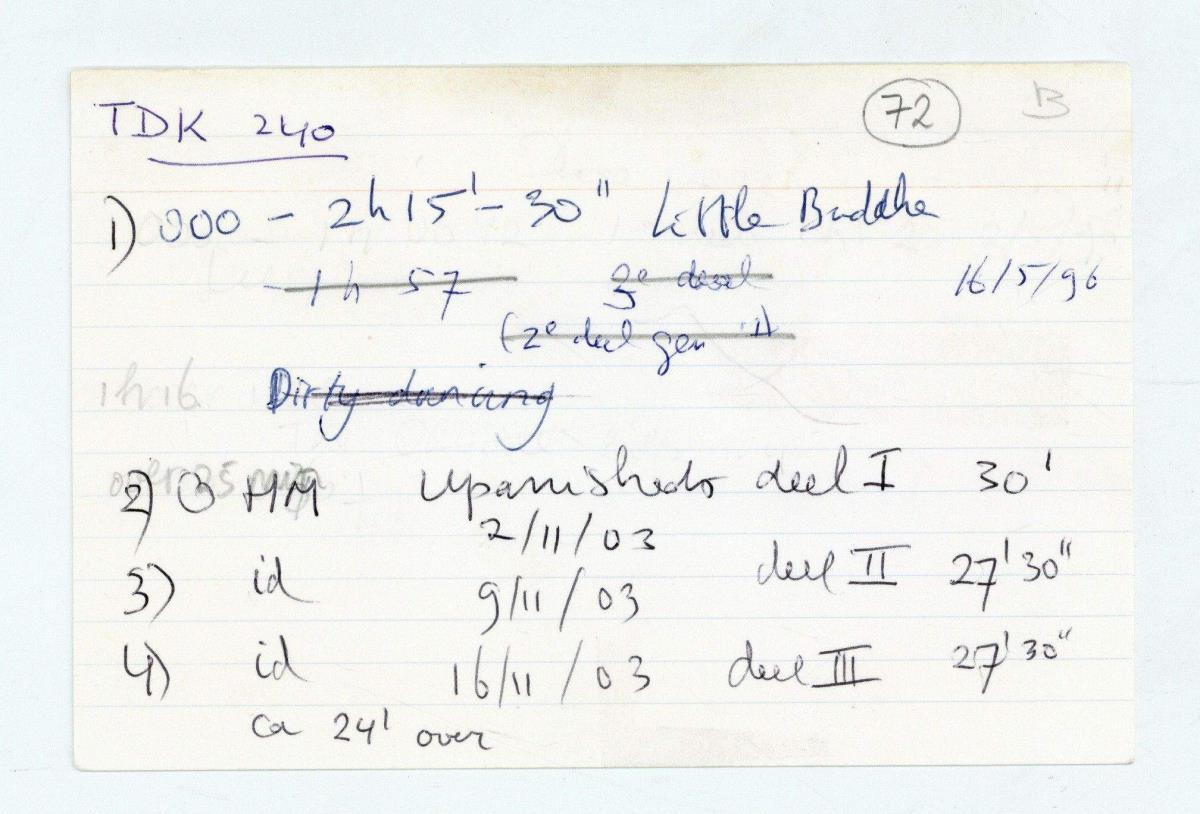 TDK 240 72 B
1) 000 - 2h 15' - 30" Little Buddha
- 1h 57 3e deel 16/5/96
(2e deel gen 1)
1h16 Dirty dancing
2) HM Upanishads deel I 30'
over 25 min
2/11/03
3) id 9/11/03 deel II 27'30"
4) id 16/11/03 deel III 27'30"
ca 24' over